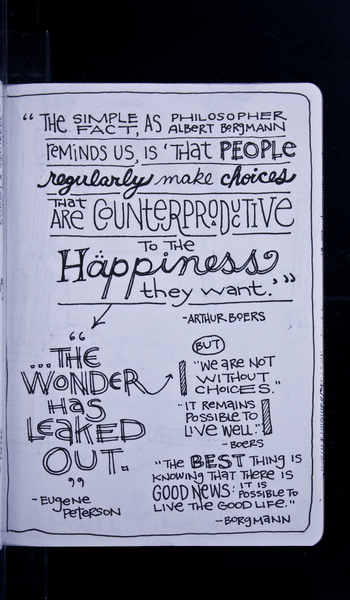 "THE SIMPLE FACT, AS PHILOSOPHER ALBERT BORGMANN
REMINDS US, IS 'THAT PEOPLE
regularly make choices
THAT ARE COUNTERPRODUCTIVE
TO THE
Häppiness
they want.'"
-ARTHUR BOERS
"
...THE
WONDER
HAS
LEAKED
OUT.
"
-EUGENE
PETERSON
BUT
"WE ARE NOT
WITHOUT
CHOICES."
"IT REMAINS
POSSIBLE TO
LIVE WELL."
-BOERS
"THE BEST THING IS
KNOWING THAT THERE IS
GOOD NEWS: IT IS POSSIBLE TO
LIVE THE GOOD LIFE."
-BORGMANN